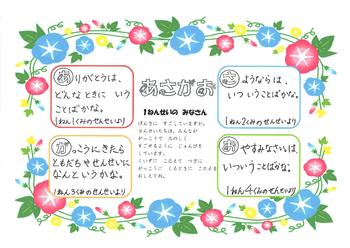 あさがお
1ねんせいの みなさん
げんきに すごしていますか。
せんせいたちは、みんなが
がっこうで たのしく
すごせるように じゅんびを
しています。
くいずに こたえて つぎに
がっこうに くるときに こたえを
おしえてね。
ありがとうは、
どんなときに いう
ことばかな。
1ねん1くみのせんせいより
さようならは、
いついうことばかな。
1ねん2くみのせんせいより
がっこうにきたら
ともだちやせんせいに
なんというかな。
1ねん3くみのせんせいより
おやすみなさいは、
いついうことばかな。
1ねん4くみのせんせいより